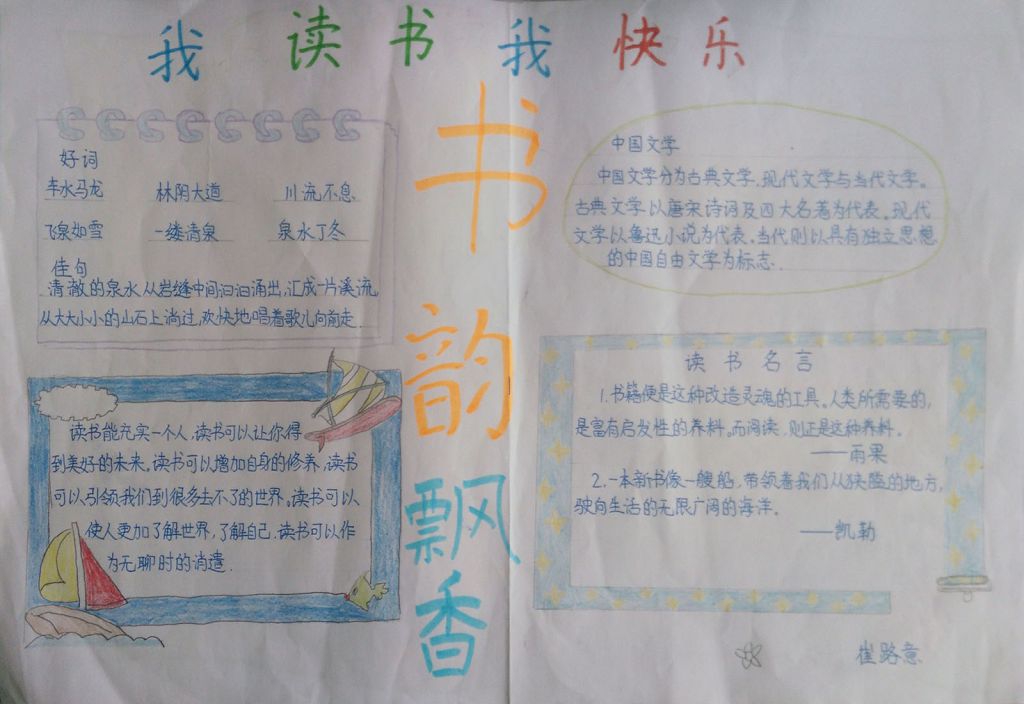 我读书我快乐
书韵飘香
好词
车水马龙 林阴大道 川流不息
飞泉如雪 一缕清泉 泉水丁冬
佳句
清澈的泉水从岩缝中间汩汩涌出,汇成一片溪流,
从大大小小的山石上淌过,欢快地唱着歌儿向前走.
读书能充实一个人,读书可以让你得
到美好的未来。读书可以增加自身的修养,读书
可以引领我们到很多去不了的世界。读书可以
使人更加了解世界,了解自己.读书可以作
为无聊时的消遣.
中国文学
中国文学分为古典文学、现代文学与当代文学。
古典文学以唐宋诗词及四大名著为代表。现代
文学以鲁迅小说为代表。当代则以具有独立思想
的中国自由文学为标志.
读书名言
1.书籍便是这种改造灵魂的工具。人类所需要的,
是富有启发性的养料。而阅读,则正是这种养料。
——雨果
2.一本新书像一艘船,带领着我们从狭隘的地方,
驶向生活的无限广阔的海洋.
——凯勒
崔路意